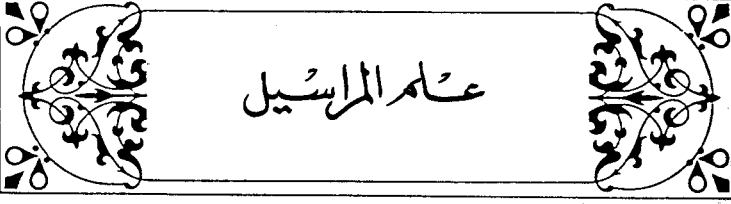 عـلم المراسيل